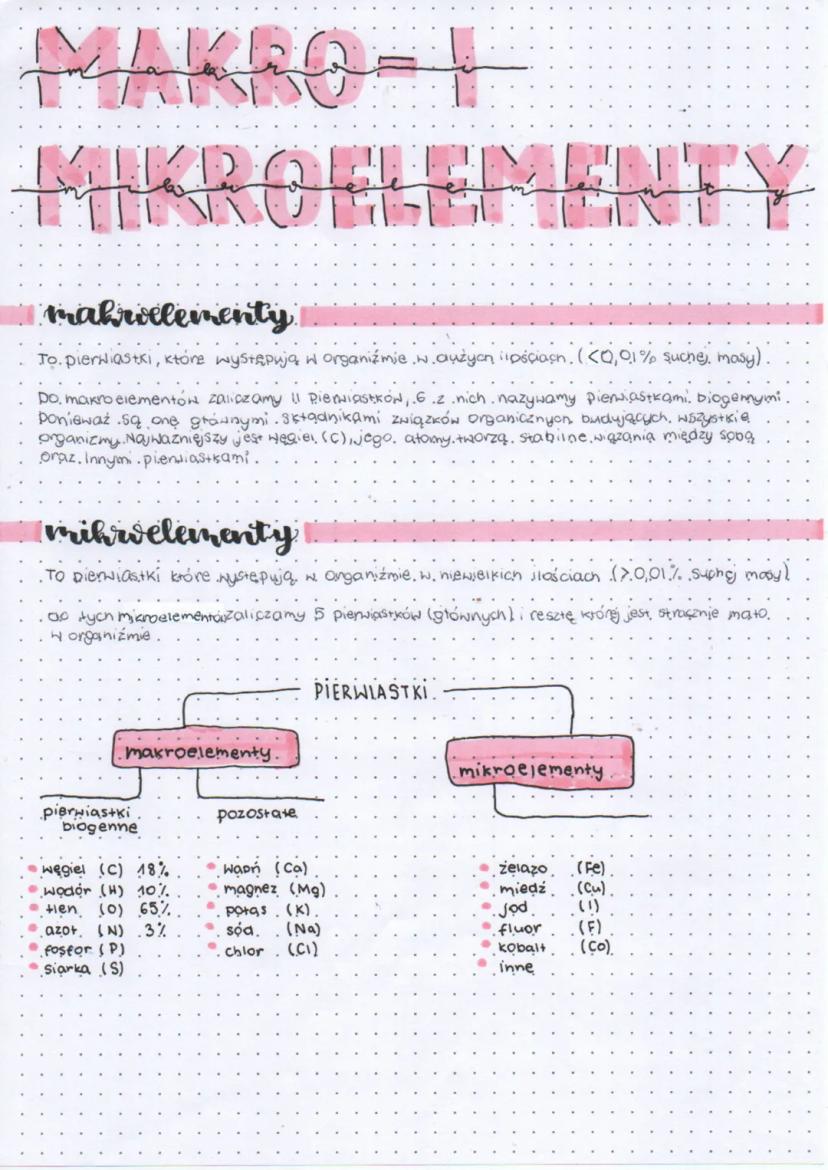 MAKRO- I
makro-i
MIKROELEMENTY
mikroelementy
makroelementy
To pierwiastki, które występują w organiźmie w dużych ilościach. (<0,01% suchej masy).
Do makroelementów zaliczamy 11 pierwiastków, 6 z nich nazywamy pierwiastkami biogennymi.
Ponieważ są one głównymi składnikami związków organicznych budujących wszystkie
organizmy. Najważniejszy jest węgiel (C), jego atomy tworzą stabilne wiązania między sobą
oraz innymi pierwiastkami.
mikroelementy
To pierwiastki które występują w organiźmie w niewielkich ilościach (>0,01% suchej masy)
do tych mikroelementów zaliczamy 5 pierwiastków (głównych) i resztę której jest strasznie mało
w organiźmie.
PIERWIASTKI
makroelementy
mikroelementy
pierwiastki biogenne
pozostałe
węgiel (C) 18%
wodór (H) 10%
tlen (O) 65%
azot (N) 3%
fosfor (P)
siarka (S)
wapń (Ca)
magnez (Mg)
potas (K)
sód (Na)
chlor (Cl)
żelazo (Fe)
miedź (Cu)
jod (I)
fluor (F)
kobalt (Co)
inne